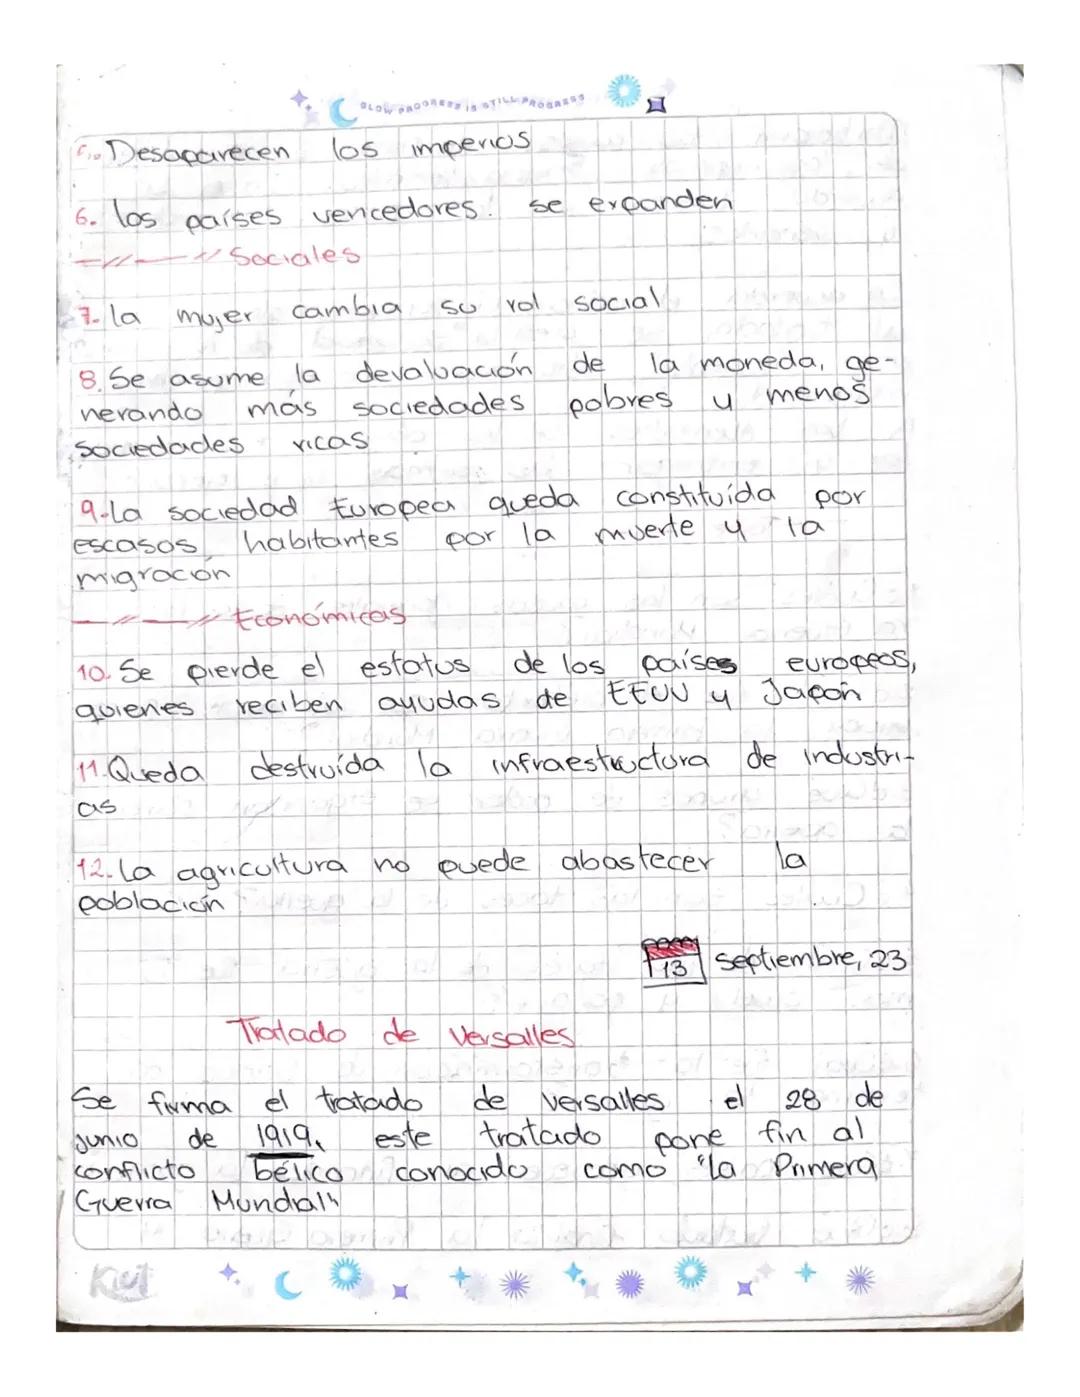 SLOW PROGRESS IS STILL PROGRESS
5. Desaparecen los imperios
6. los países vencedores. se expanden
Sociales
7. la mujer cambia su rol social
8. Se asume la devaluación de la moneda, ge-
nerando más sociedades pobres y menos
sociedades ricas
9. La sociedad Europea queda constituída por
escasos habitantes por la muerte y la
migración
Económicas
10. Se pierde el estatus de los países europeos,
quienes reciben ayudas de EEUU y Japón
11. Queda destruída la infraestructura de industri-
as
12. La agricultura no puede abastecer la
población
13 septiembre, 23
Tratado de Versalles
Se firma el tratado de versalles el 28 de
junio de 1919, este tratado pone fin al
conflicto bélico conocido como "la Primera
Guerra Mundial"
Kiut